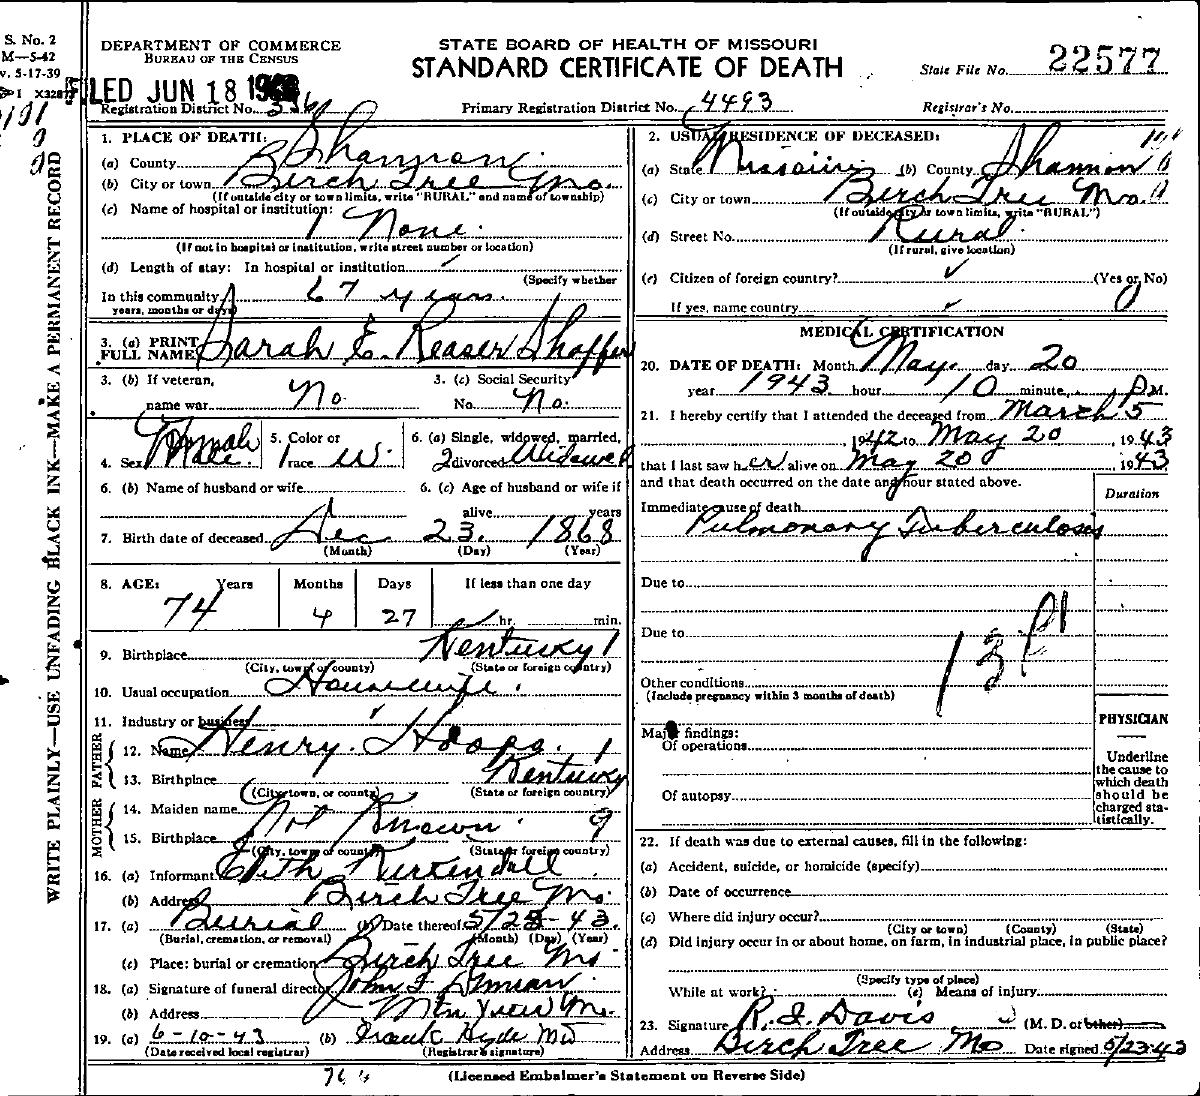 S. No. 2
M—5-42
v. 5-17-39
I X3287
DEPARTMENT OF COMMERCE
BUREAU OF THE CENSUS
LED JUN 18 19
Registration District No.
STATE BOARD OF HEALTH OF MISSOURI
STANDARD CERTIFICATE OF DEATH
Primary Registration District No. 4493
State File No. 22577
Registrar's No.
WRITE PLAINLY—USE UNFADING BLACK INK—MAKE A PERMANENT RECORD
1. PLACE OF DEATH:
(a) County Shannon
(b) City or town Birch Tree Mo.
(If outside city or town limits, write "RURAL" and name of township)
(c) Name of hospital or institution:
None.
(If not in hospital or institution, write street number or location)
(d) Length of stay: In hospital or institution
(Specify whether
In this community 67 years.
years, months or days)
3. (a) PRINT FULL NAME Sarah E. Reaser Shaffer
3. (b) If veteran, name war No.
3. (c) Social Security No. No.
4. Sex Female
5. Color or race W.
6. (a) Single, widowed, married, divorced Widowed
6. (b) Name of husband or wife
6. (c) Age of husband or wife if alive years
7. Birth date of deceased Dec 23. 1868
(Month) (Day) (Year)
8. AGE: Years Months Days If less than one day
74 4 27 hr. min.
9. Birthplace Kentucky 1
(City, town, or county) (State or foreign country)
10. Usual occupation Housewife.
11. Industry or business
FATHER
12. Name Henry. Hoops. 1
13. Birthplace Kentucky
(City, town, or county) (State or foreign country)
MOTHER
14. Maiden name Not Known. 9
15. Birthplace
(City, town, or county) (State or foreign country)
16. (a) Informant Kuykendall
(b) Address Birch Tree Mo.
17. (a) Burial (b) Date thereof 5/23-43.
(Burial, cremation, or removal) (Month) (Day) (Year)
(c) Place: burial or cremation Birch Tree Mo
18. (a) Signature of funeral director John F
(b) Address Mtn View Mo.
19. (a) 6-10-43 (b) Frank Hyde MD
(Date received local registrar) (Registrar's signature)
2. USUAL RESIDENCE OF DECEASED:
(a) State Missouri (b) County Shannon
(c) City or town Birch Tree Mo.
(If outside city or town limits, write "RURAL")
(d) Street No. Rural.
(If rural, give location)
(e) Citizen of foreign country? (Yes or No)
If yes, name country 0
MEDICAL CERTIFICATION
20. DATE OF DEATH: Month May. day 20
year 1943. hour 10 minute P.M.
21. I hereby certify that I attended the deceased from March 5
1942 to May 20, 1943
that I last saw her alive on May 20 1943
and that death occurred on the date and hour stated above.
Immediate cause of death Duration
Pulmonary Tuberculosis
Due to
Due to
13
Other conditions
(Include pregnancy within 3 months of death)
Major findings:
Of operations
Of autopsy
PHYSICIAN
Underline the cause to which death should be charged statistically.
22. If death was due to external causes, fill in the following:
(a) Accident, suicide, or homicide (specify)
(b) Date of occurrence
(c) Where did injury occur?
(City or town) (County) (State)
(d) Did injury occur in or about home, on farm, in industrial place, in public place?
(Specify type of place)
While at work? (e) Means of injury
23. Signature R. I. Davis (M. D. or other)
Address Birch Tree Mo Date signed 5/23-43
(Licensed Embalmer's Statement on Reverse Side)